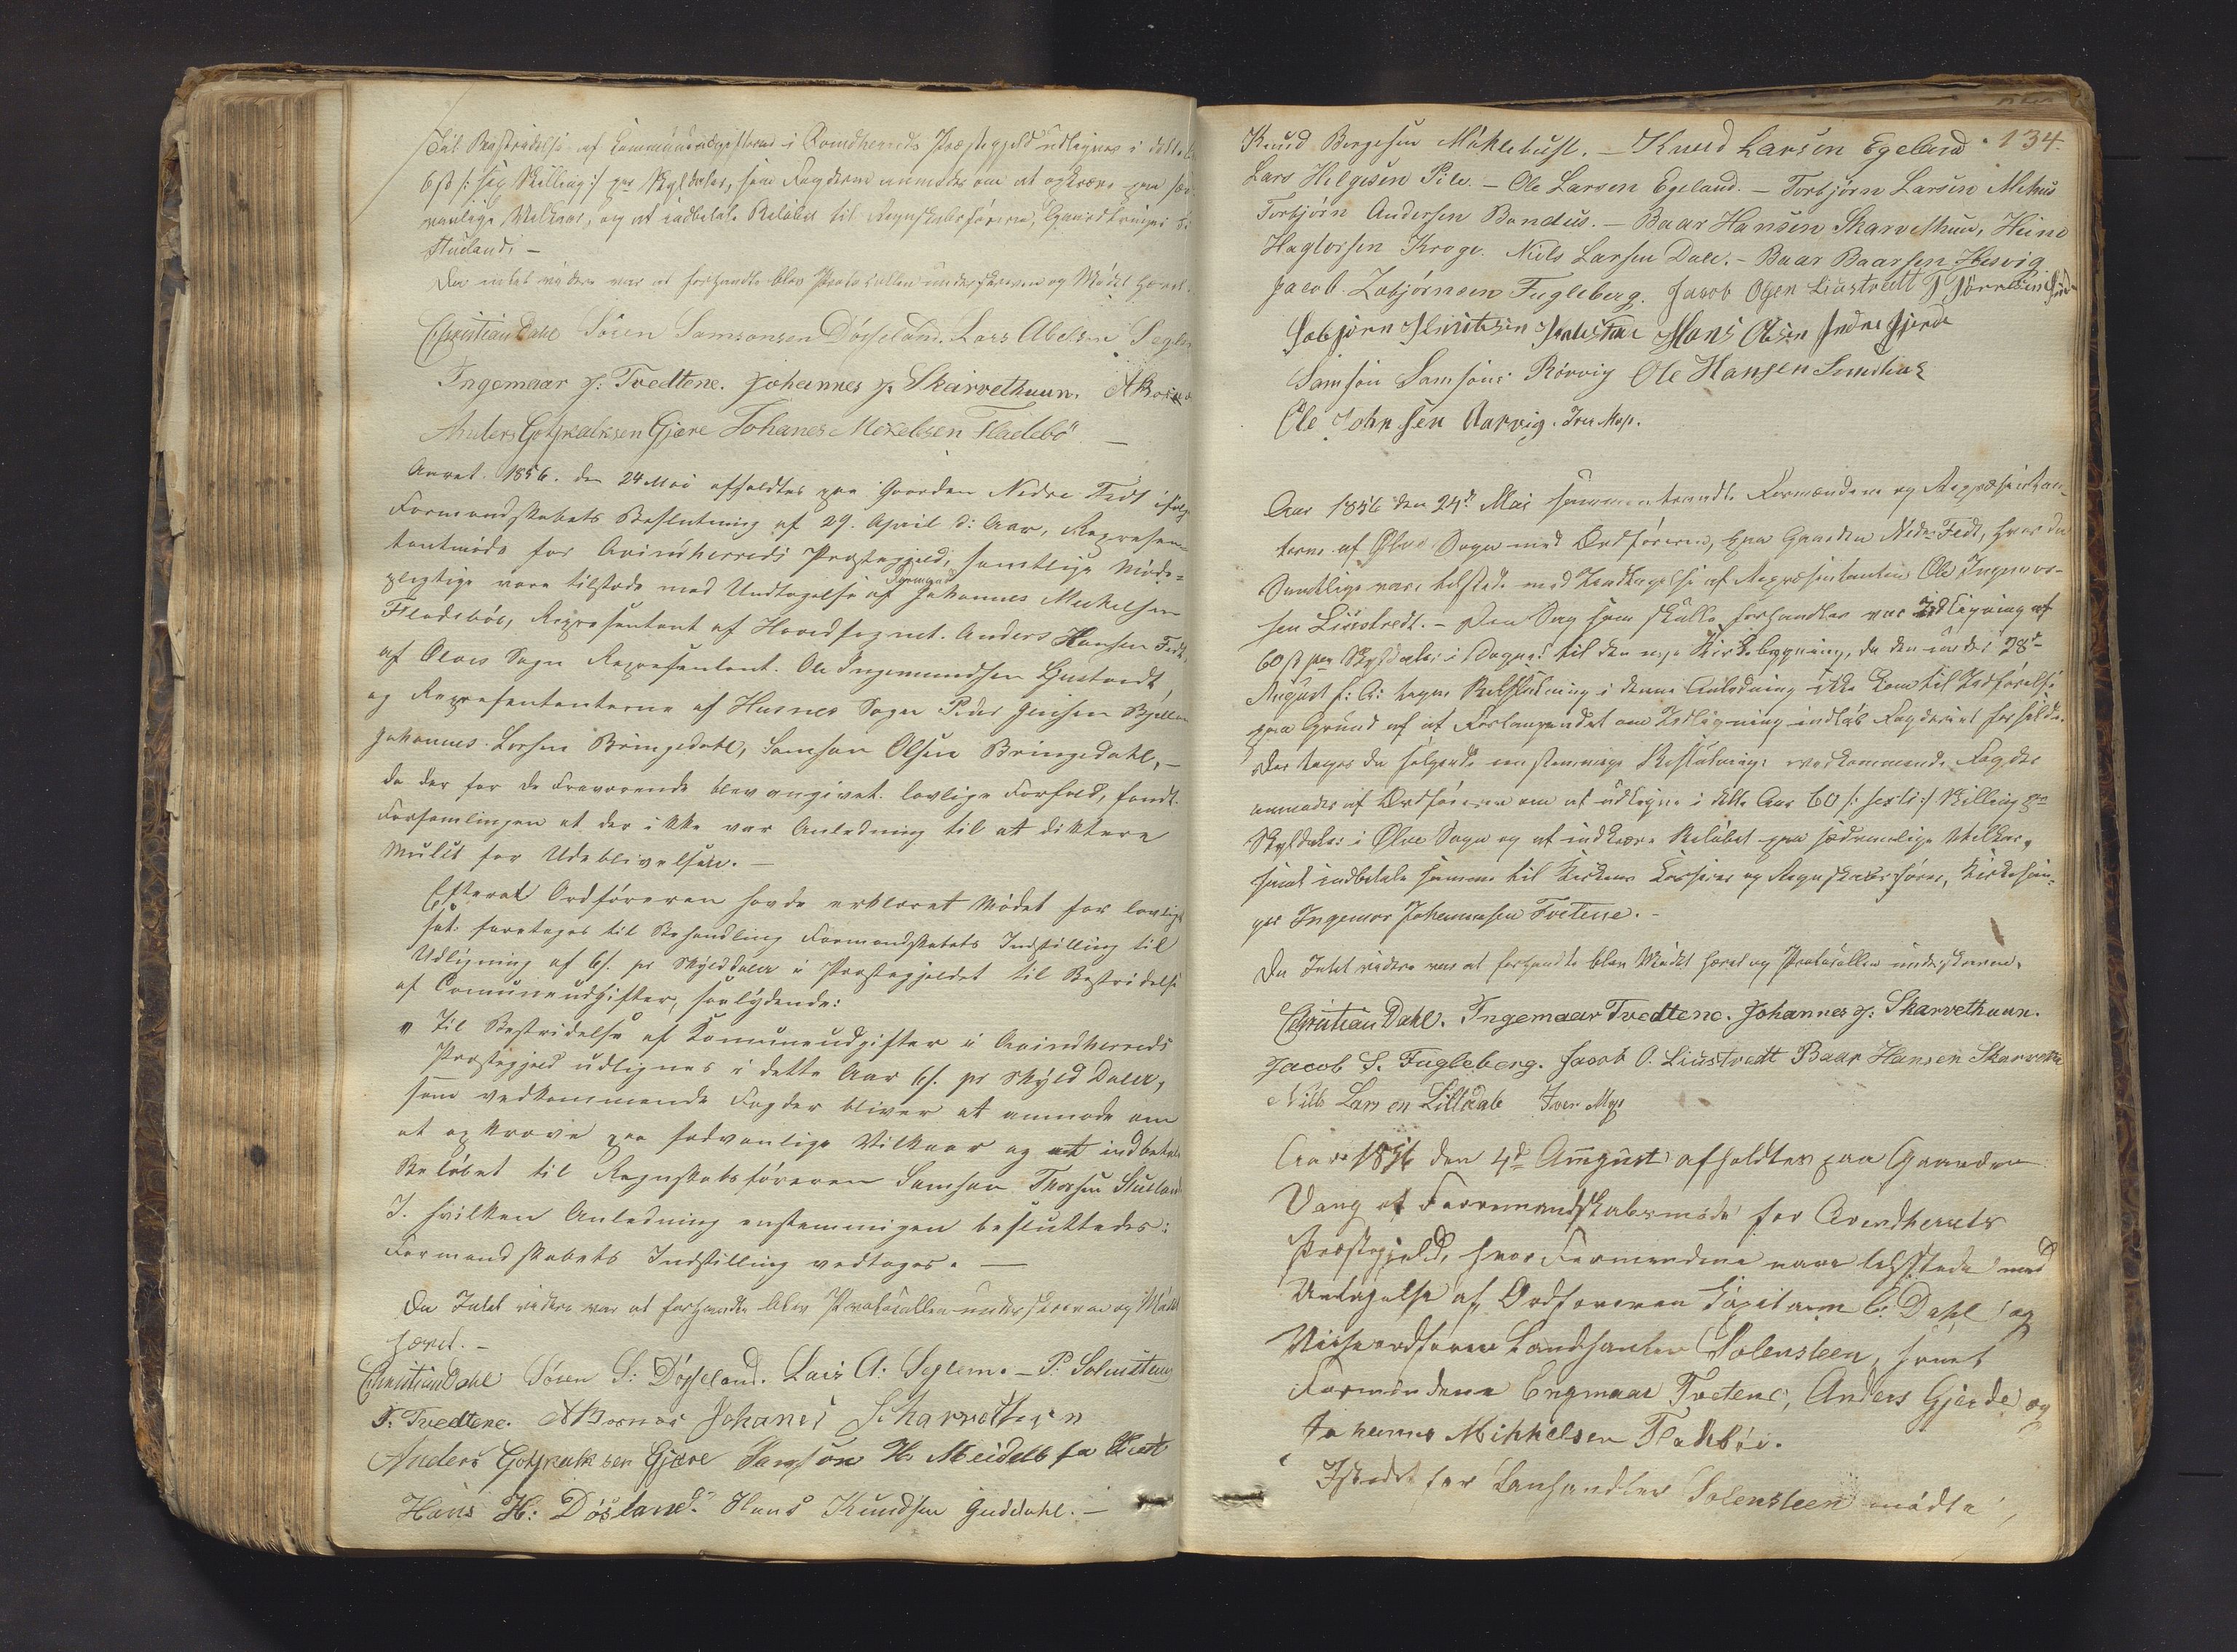 Til Bestridelse af Communeudgifterne i Qvindherreds Præstegjeld udlignes i dette
6 ß /: sex Skilling :/ pr Skylddaler, som Fogderne anmodes om at opkræve paa sæd
vanlige Vilkaar, og at indbetale Beløbet til Regnskabsføreren,
Stueland. –
Da intet videre var at forhandle blev Protocollen underskreven og Mødet hævet.
Christian Dahl Sören Samsonsen Døsseland. Lars Abelsen Seglem
Ingemaar J: Tvedtene. Johannes J. Skarvethuun.
Anders Gotskalksen Gjære Johanes Mikelsen Fladebö –
Aaret 1856. den 24 Mai afholdtes paa Gaarden Nedre Fedt ifølge
Formandskabets Beslutning af 29. April d: Aar, Represen-
tantmøde for Qvindherreds Præstegjeld, samtlige Møde-
pligtige vare tilstede med Undtagelse af Formand Johannes Mickelsen
Fladebøe, Representant af Hovedsognet. Anders Hansen Fedt,
af Ølves Sogn Representant. Ole Ingemundsen Liustvedt,
og Representanterne af Husnes Sogn Peder Jensen
Johannes Larsen Bringedahl, Samson Olsen Bringedahl, –
da der for de Fraværende blev angivet lovlige Forfald, fandt
Forsamlingen at der ikke var Anledning til at diktere
Mulct for Udeblivelsen. –
Efterat Ordføreren havde erklæret Mødet for lovligt
sat: foretoges til Behandling Formandskabets Indstilling til
Udligning af 6 ß. pr Skylddaler i Præstegjeldet til Bestridelse
af Comuneudgifter, saalydende:
" Til Bestridelse af Komuneudgifter i Qvindherreds
Præstegjeld udlignes i dette Aar 6 ß. pr Skyld Daler,
som vedkommende Fogder bliver at anmode om
at opkræve paa sædvanlige Vilkaar og at indbetale
Beløbet til Regnskabsføreren Samson Thorsen Stueland
I hvilken Anledning enstemmigen besluttedes:
Formandskabets Indstilling vedtages. –
Da Intet videre var at forhandle blev Protocollen underskreven og Mødet
hævet. –
Christian Dahl Sören S: Døsseland. Lars A: Seglem. – P. Solensteen
I. Tvedtene. Johanes Skarvethun
Anders Gotskalksen Gjære Samson H. Meidell
Hans H: Døsland. Hans Knudsen Guddahl. –
134.
Knud Borgesen Mäklebust. – Knud Larsen Egeland
Lars Helgesen Pile. – Ole Larsen Egeland. – Torbjörn Larsen Mehus
Torbjörn Andersen Bondhus. – Baar Hansen Skarvethuun, Heine
Haglorsen Kroge. Niels Larsen Dale. – Baar Baarsen Hesvig
Jacob Zabjörnsen Fugleberg. Jacob Olsen Liustvedt
Sabjørn Knutsen Hans Olsen Indre Gjerde
Samson Samsons Rörvig Ole Hansen Sundhus
Ole Johnsen Aarvig. Iver Mop.
Aar 1856 den 24de Mai sammentraadte Formændene og Repræsentan-
terne af Ølve Sogn med Ordføreren, paa Gaarden Nedre Fedt, hvor da
Samtlige vare tilstede med Undtagelse af Repræsentanten Ole Ingmars-
sen Liustvedt. – Den Sag som skulle forhandles var Udligning af
60 ß pr Skylddaler i Sognet til den nye Kirkebygning, da den under 28de
August f: A: tagne Beslutning i denne Anledning ikke kom til Udførelse
paa Grund af at Forlangendet om Udligning indløb Fogderiet forsilde.
Der toges da følgende enstemmige Beslutning: vedkommende Fogder
anmodes af Ordføreren om at udligne i dette Aar 60 /: sexti :/ Skilling pr
Skylddaler i Ølve Sogn og at indkræve Beløbet paa sædvanlige Vilkaar,
samt indbetale samme til Kirkens Kasserer og Regnskabsfører, Kirkesan-
ger Ingemar Johannesen Tvetene. –
Da Intet videre var at forhandle blev Mödet hævet og Protocollen underskreven.
Christian Dahl. Ingemaar Tvedtene. Johannes J: Skarvethuun.
Jacob S. Fugleberg. Jacob O. Liustvedt Baar Hansen Skarvethu
Nills Larsen Lilledale Iver Mop
Aar 1856 den 4de August afholdtes paa Gaarden
Vang et Formandskabsmøde for Qvindherreds
Præstegjeld, hvor Formændene vare tilstede med
Untagelse af Ordføreren Capitain C. Dahl og
Viceordfører Landhandler Solensteen, samt
Formændene Engmaar Tvetene, Anders Gjerde og
Johannes Mikkelsen Fladebøe.
Istedet for Lanhandler Solensteen mødte,